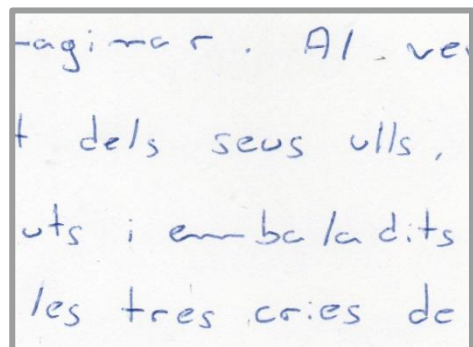 maginar. Al veu
t dels seus ulls,
uts i embaladits
les tres cries de